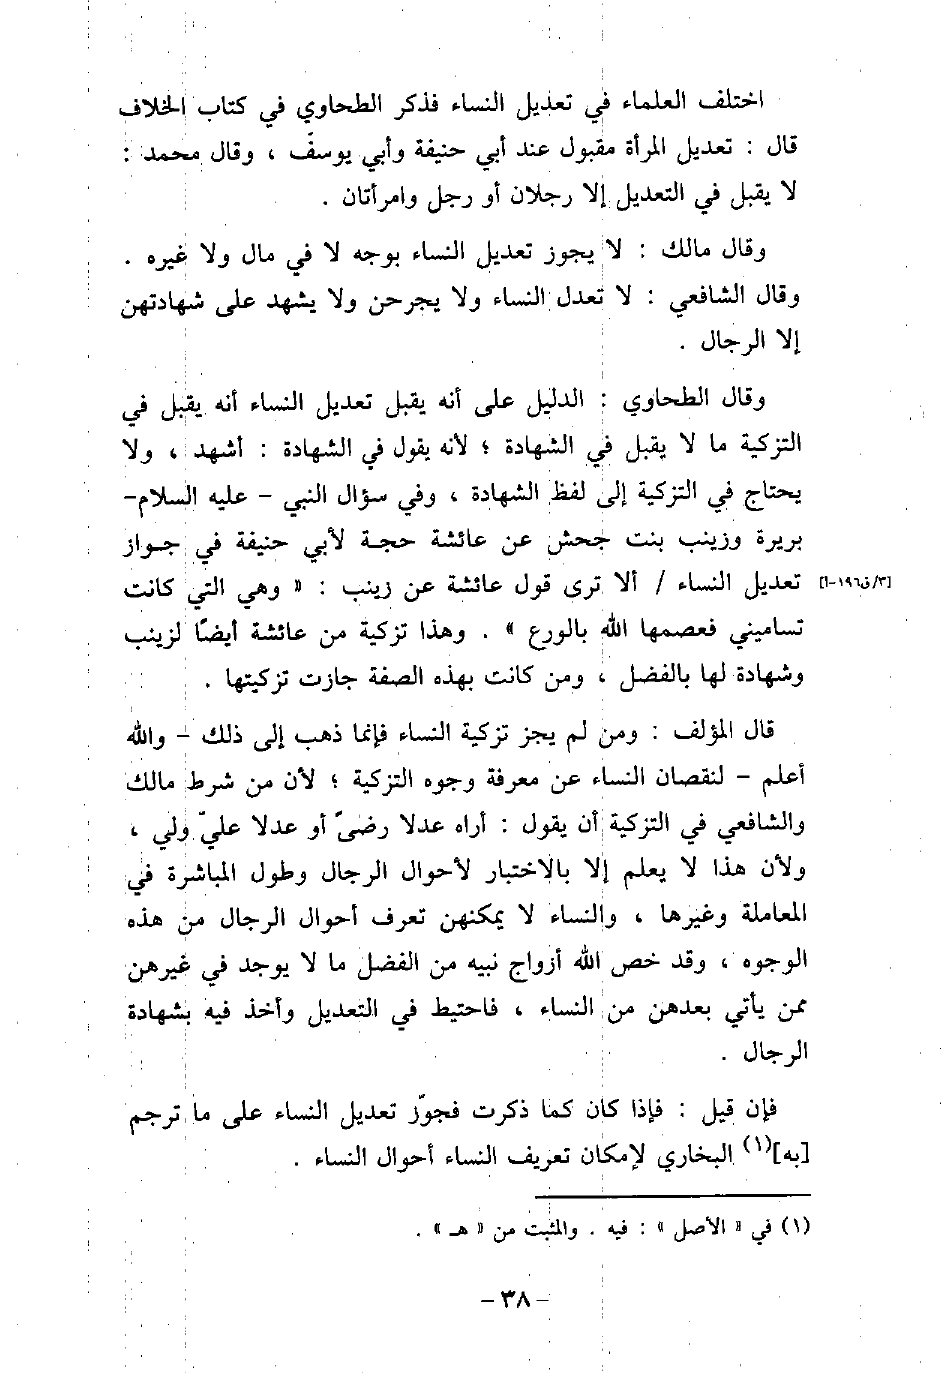 اختلف العلماء في تعديل النساء فذكر الطحاوي في كتاب الخلاف
قال : تعديل المرأة مقبول عند أبي حنيفة وأبي يوسف ، وقال محمد :
لا يقبل في التعديل إلا رجلان أو رجل وامرأتان .
وقال مالك : لا يجوز تعديل النساء بوجه لا في مال ولا غيره .
وقال الشافعي : لا تعدل النساء ولا يجرحن ولا يشهد على شهادتهن
إلا الرجال .
وقال الطحاوي : الدليل على أنه يقبل تعديل النساء أنه يقبل في
التزكية ما لا يقبل في الشهادة ؛ لأنه يقول في الشهادة : أشهد ، ولا
يحتاج في التزكية إلى لفظ الشهادة ، وفي سؤال النبي - عليه السلام-
بريرة وزينب بنت جحش عن عائشة حجة لأبي حنيفة في جواز
تعديل النساء / ألا ترى قول عائشة عن زينب : « وهي التي كانت [٣/ق١٩٦-أ]
تساميني فعصمها الله بالورع » . وهذا تزكية من عائشة أيضًا لزينب
وشهادة لها بالفضل ، ومن كانت بهذه الصفة جازت تزكيتها .
قال المؤلف : ومن لم يجز تزكية النساء فإنما ذهب إلى ذلك - والله
أعلم - لنقصان النساء عن معرفة وجوه التزكية ؛ لأن من شرط مالك
والشافعي في التزكية أن يقول : أراه عدلا رضىً أو عدلا عليّ ولي ،
ولأن هذا لا يعلم إلا بالاختبار لأحوال الرجال وطول المباشرة في
المعاملة وغيرها ، والنساء لا يمكنهن تعرف أحوال الرجال من هذه
الوجوه ، وقد خص الله أزواج نبيه من الفضل ما لا يوجد في غيرهن
ممن يأتي بعدهن من النساء ، فاحتيط في التعديل وأخذ فيه بشهادة
الرجال .
فإن قيل : فإذا كان كما ذكرت فجوّز تعديل النساء على ما ترجم
[به](١) البخاري لإمكان تعريف النساء أحوال النساء .
(١) في « الأصل » : فيه . والمثبت من « هـ » .
-٣٨-